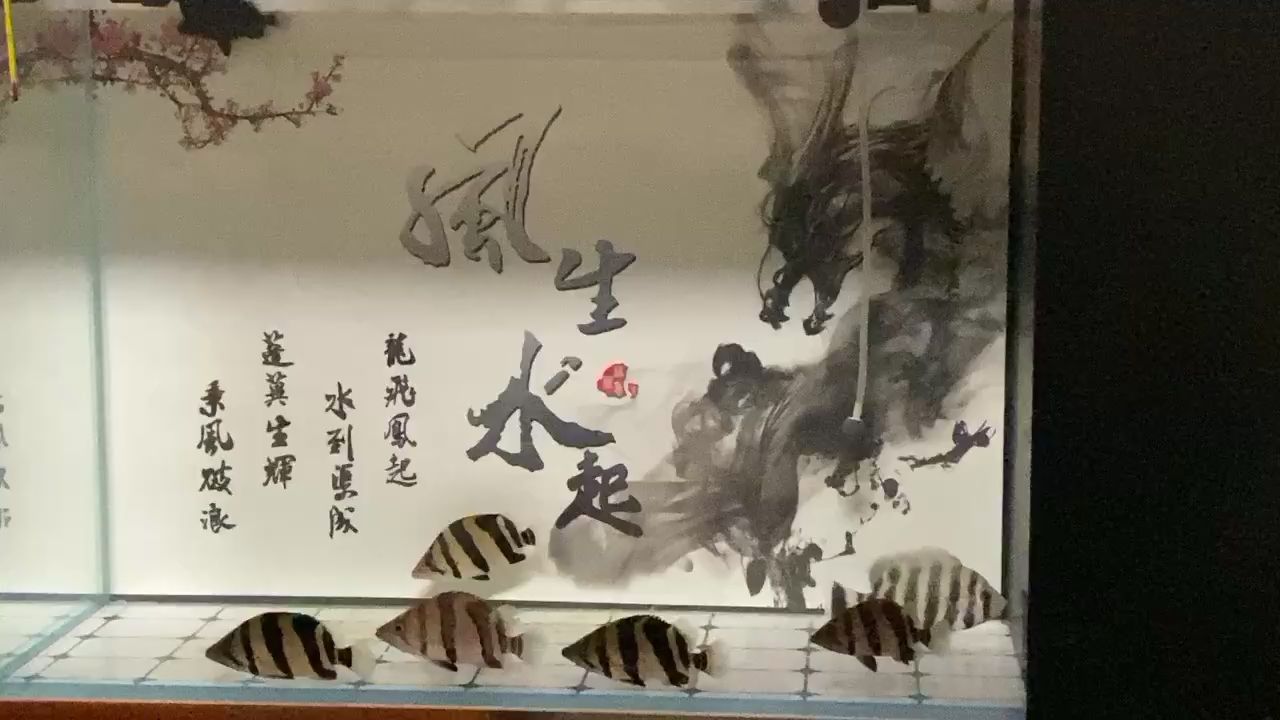 風生水起
龍飛鳳起
水到渠成
蓬蓽生輝
乘風破浪